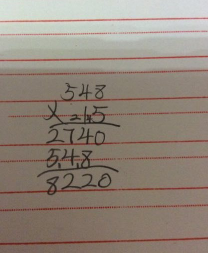 548
× 15
2740
548
8220